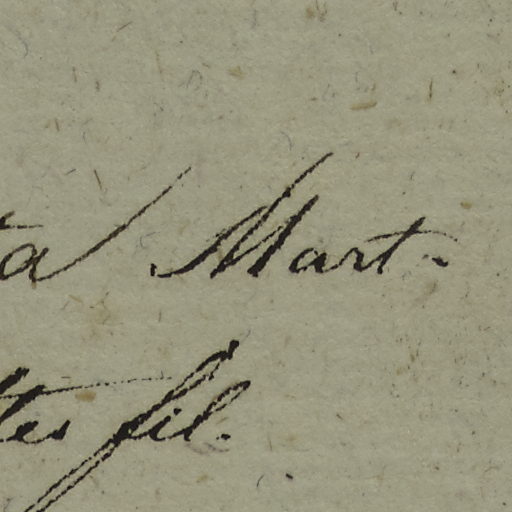 ta Mart.
tes fil.